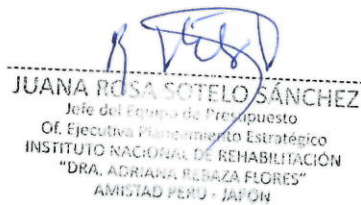 JUANA ROSA SOTELO SÁNCHEZ
Jefe del Equipo de Presupuesto
Of. Ejecutiva Planeamiento Estratégico
INSTITUTO NACIONAL DE REHABILITACIÓN
"DRA. ADRIANA REBAZA FLORES"
AMISTAD PERU - JAPÓN